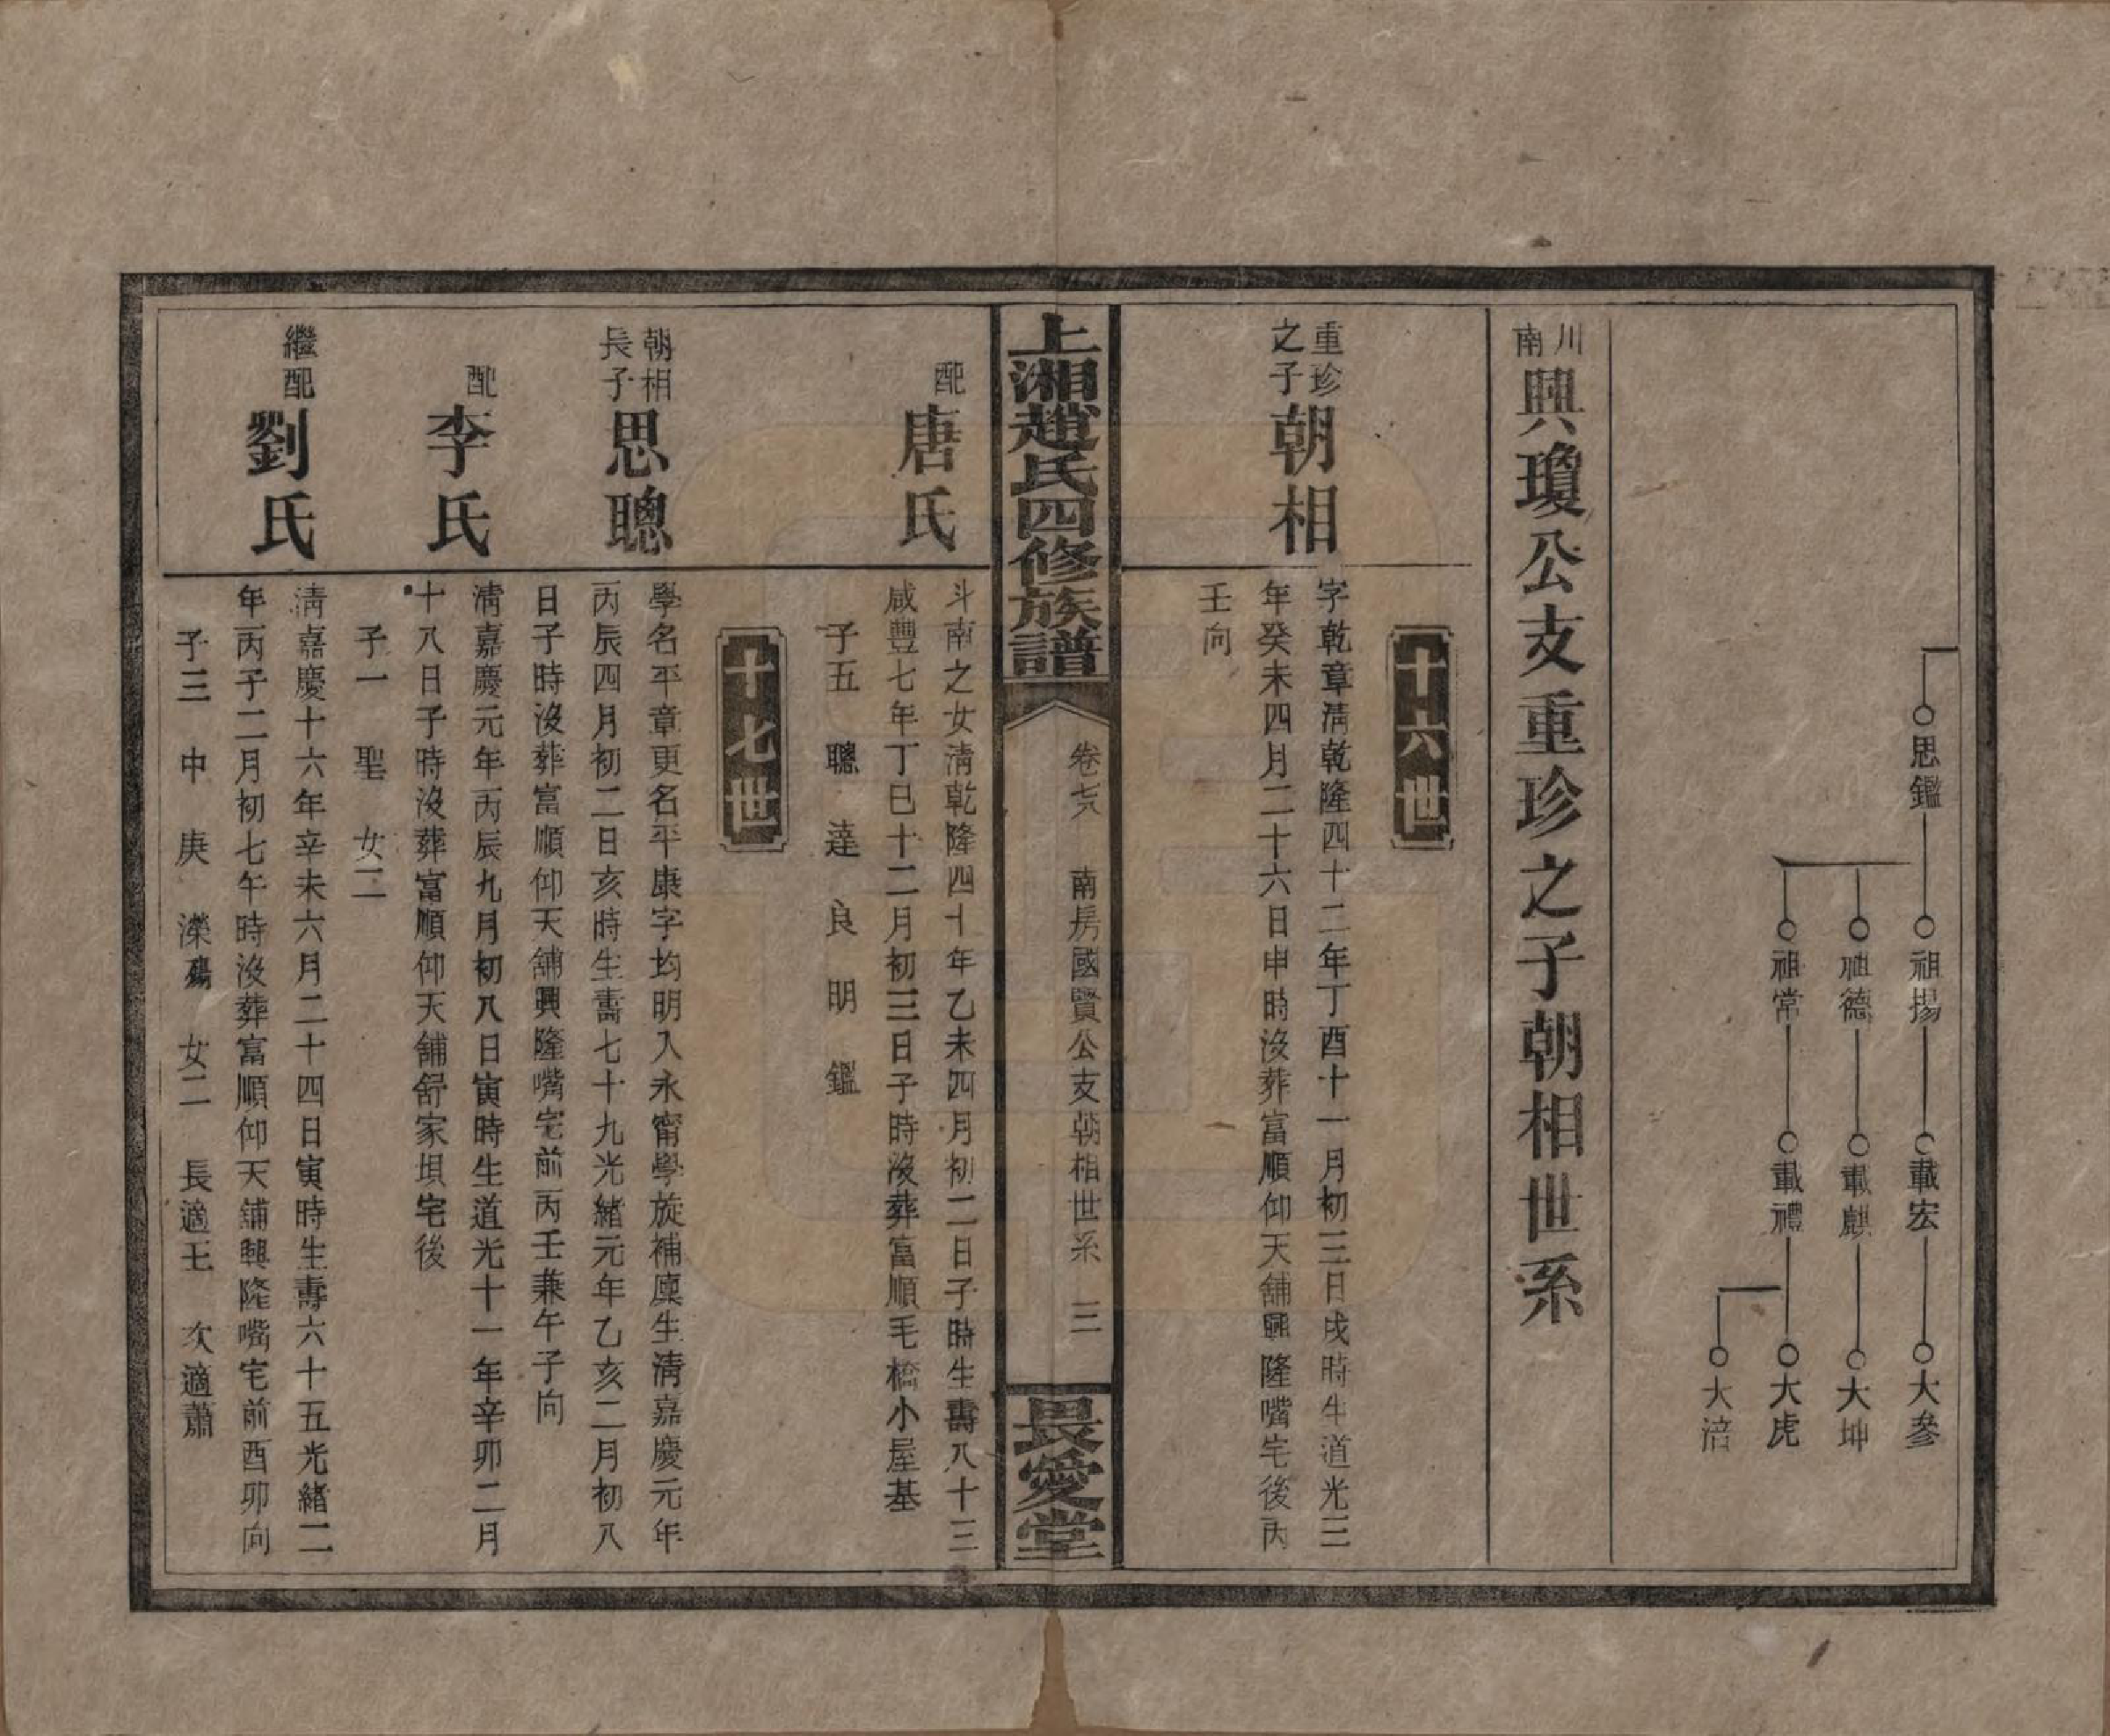 思鑑
祖揚
載宏
大參
祖德
載麒
大坤
祖常
載禮
大虎
大涪
川南興瓊公支重珍之子朝相世系
十六世
重珍之子朝相
字乾章清乾隆四十二年丁酉十一月初三日戌時生道光三
年癸未四月二十六日申時沒葬富順仰天舖興隆嘴宅後丙
壬向
上湘趙氏四修族譜
卷七八 南房國賢公支朝相世系 三
畏愛堂
配唐氏
斗南之女清乾隆四十年乙未四月初二日子時生壽八十三
咸豐七年丁巳十二月初三日子時沒葬富順毛橋小屋基
子五 聰 達 良 明 鑑
十七世
朝相長子思聰
學名平章更名平康字均明入永甯學旋補廩生清嘉慶元年
丙辰四月初二日亥時生壽七十九光緒元年乙亥二月初八
日子時沒葬富順仰天舖興隆嘴宅前丙壬兼午子向
配李氏
清嘉慶元年丙辰九月初八日寅時生道光十一年辛卯二月
十八日子時沒葬富順仰天舖舒家垻宅後
子一 聖 女二
繼配劉氏
清嘉慶十六年辛未六月二十四日寅時生壽六十五光緒二
年丙子二月初七午時沒葬富順仰天舖興隆嘴宅前酉卯向
子三 中 庚 濼殤 女二 長適王 次適蕭